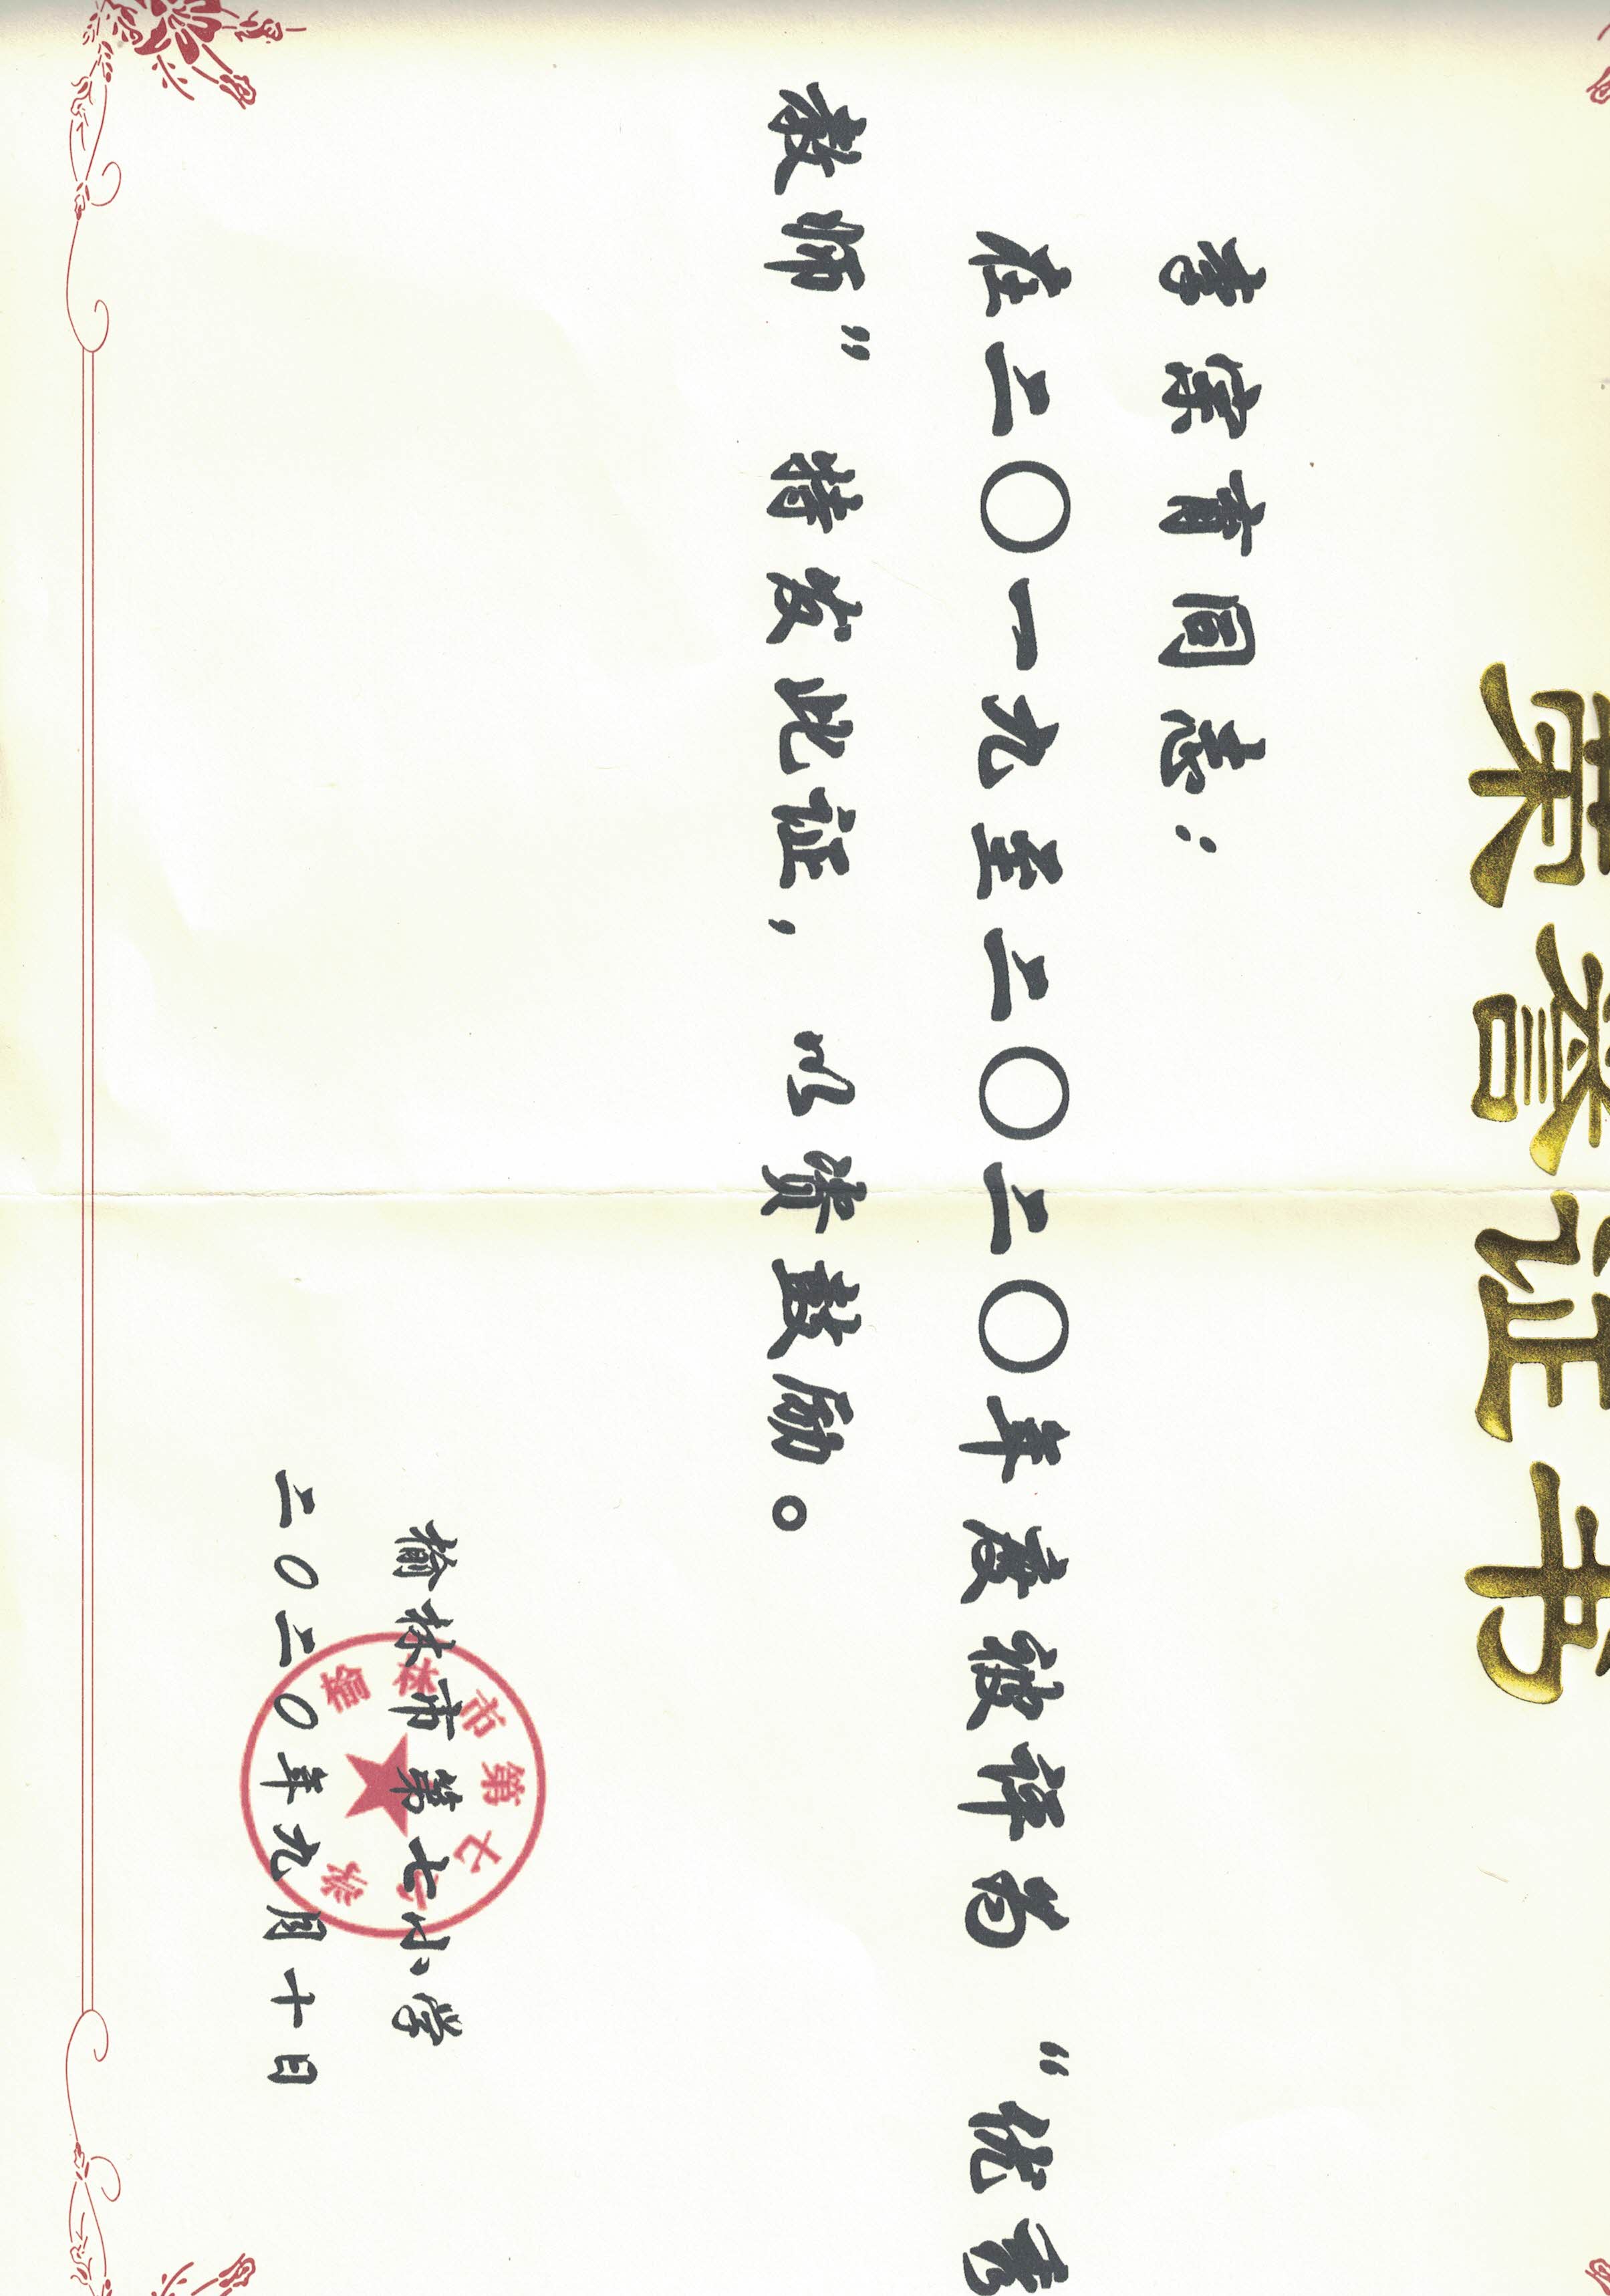 荣誉证书
李宗育同志：
在二〇一九至二〇二〇年度被评为 “优秀
教师” 特发此证，以资鼓励。
榆林市第七小学
二0二0年九月十日
榆林市第七小学